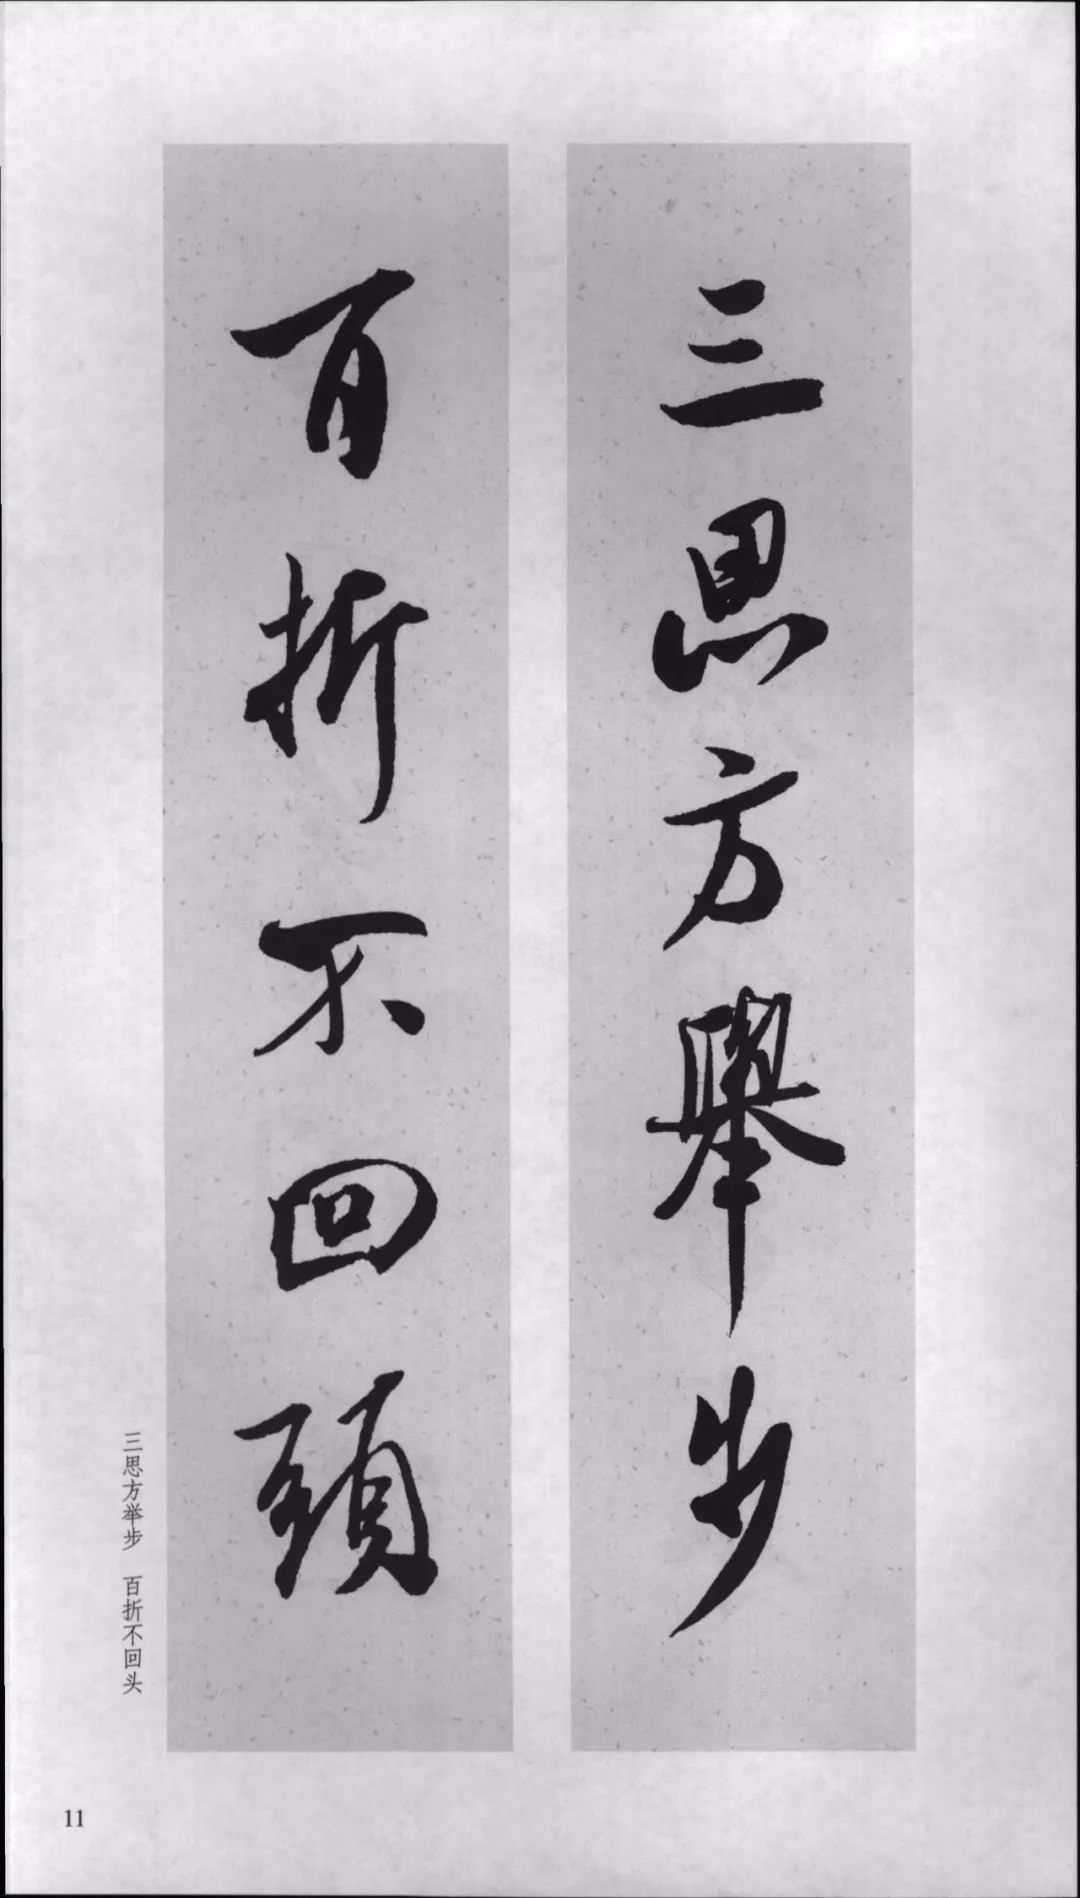 三思方舉步
百折不回頭
三思方举步 百折不回头
11